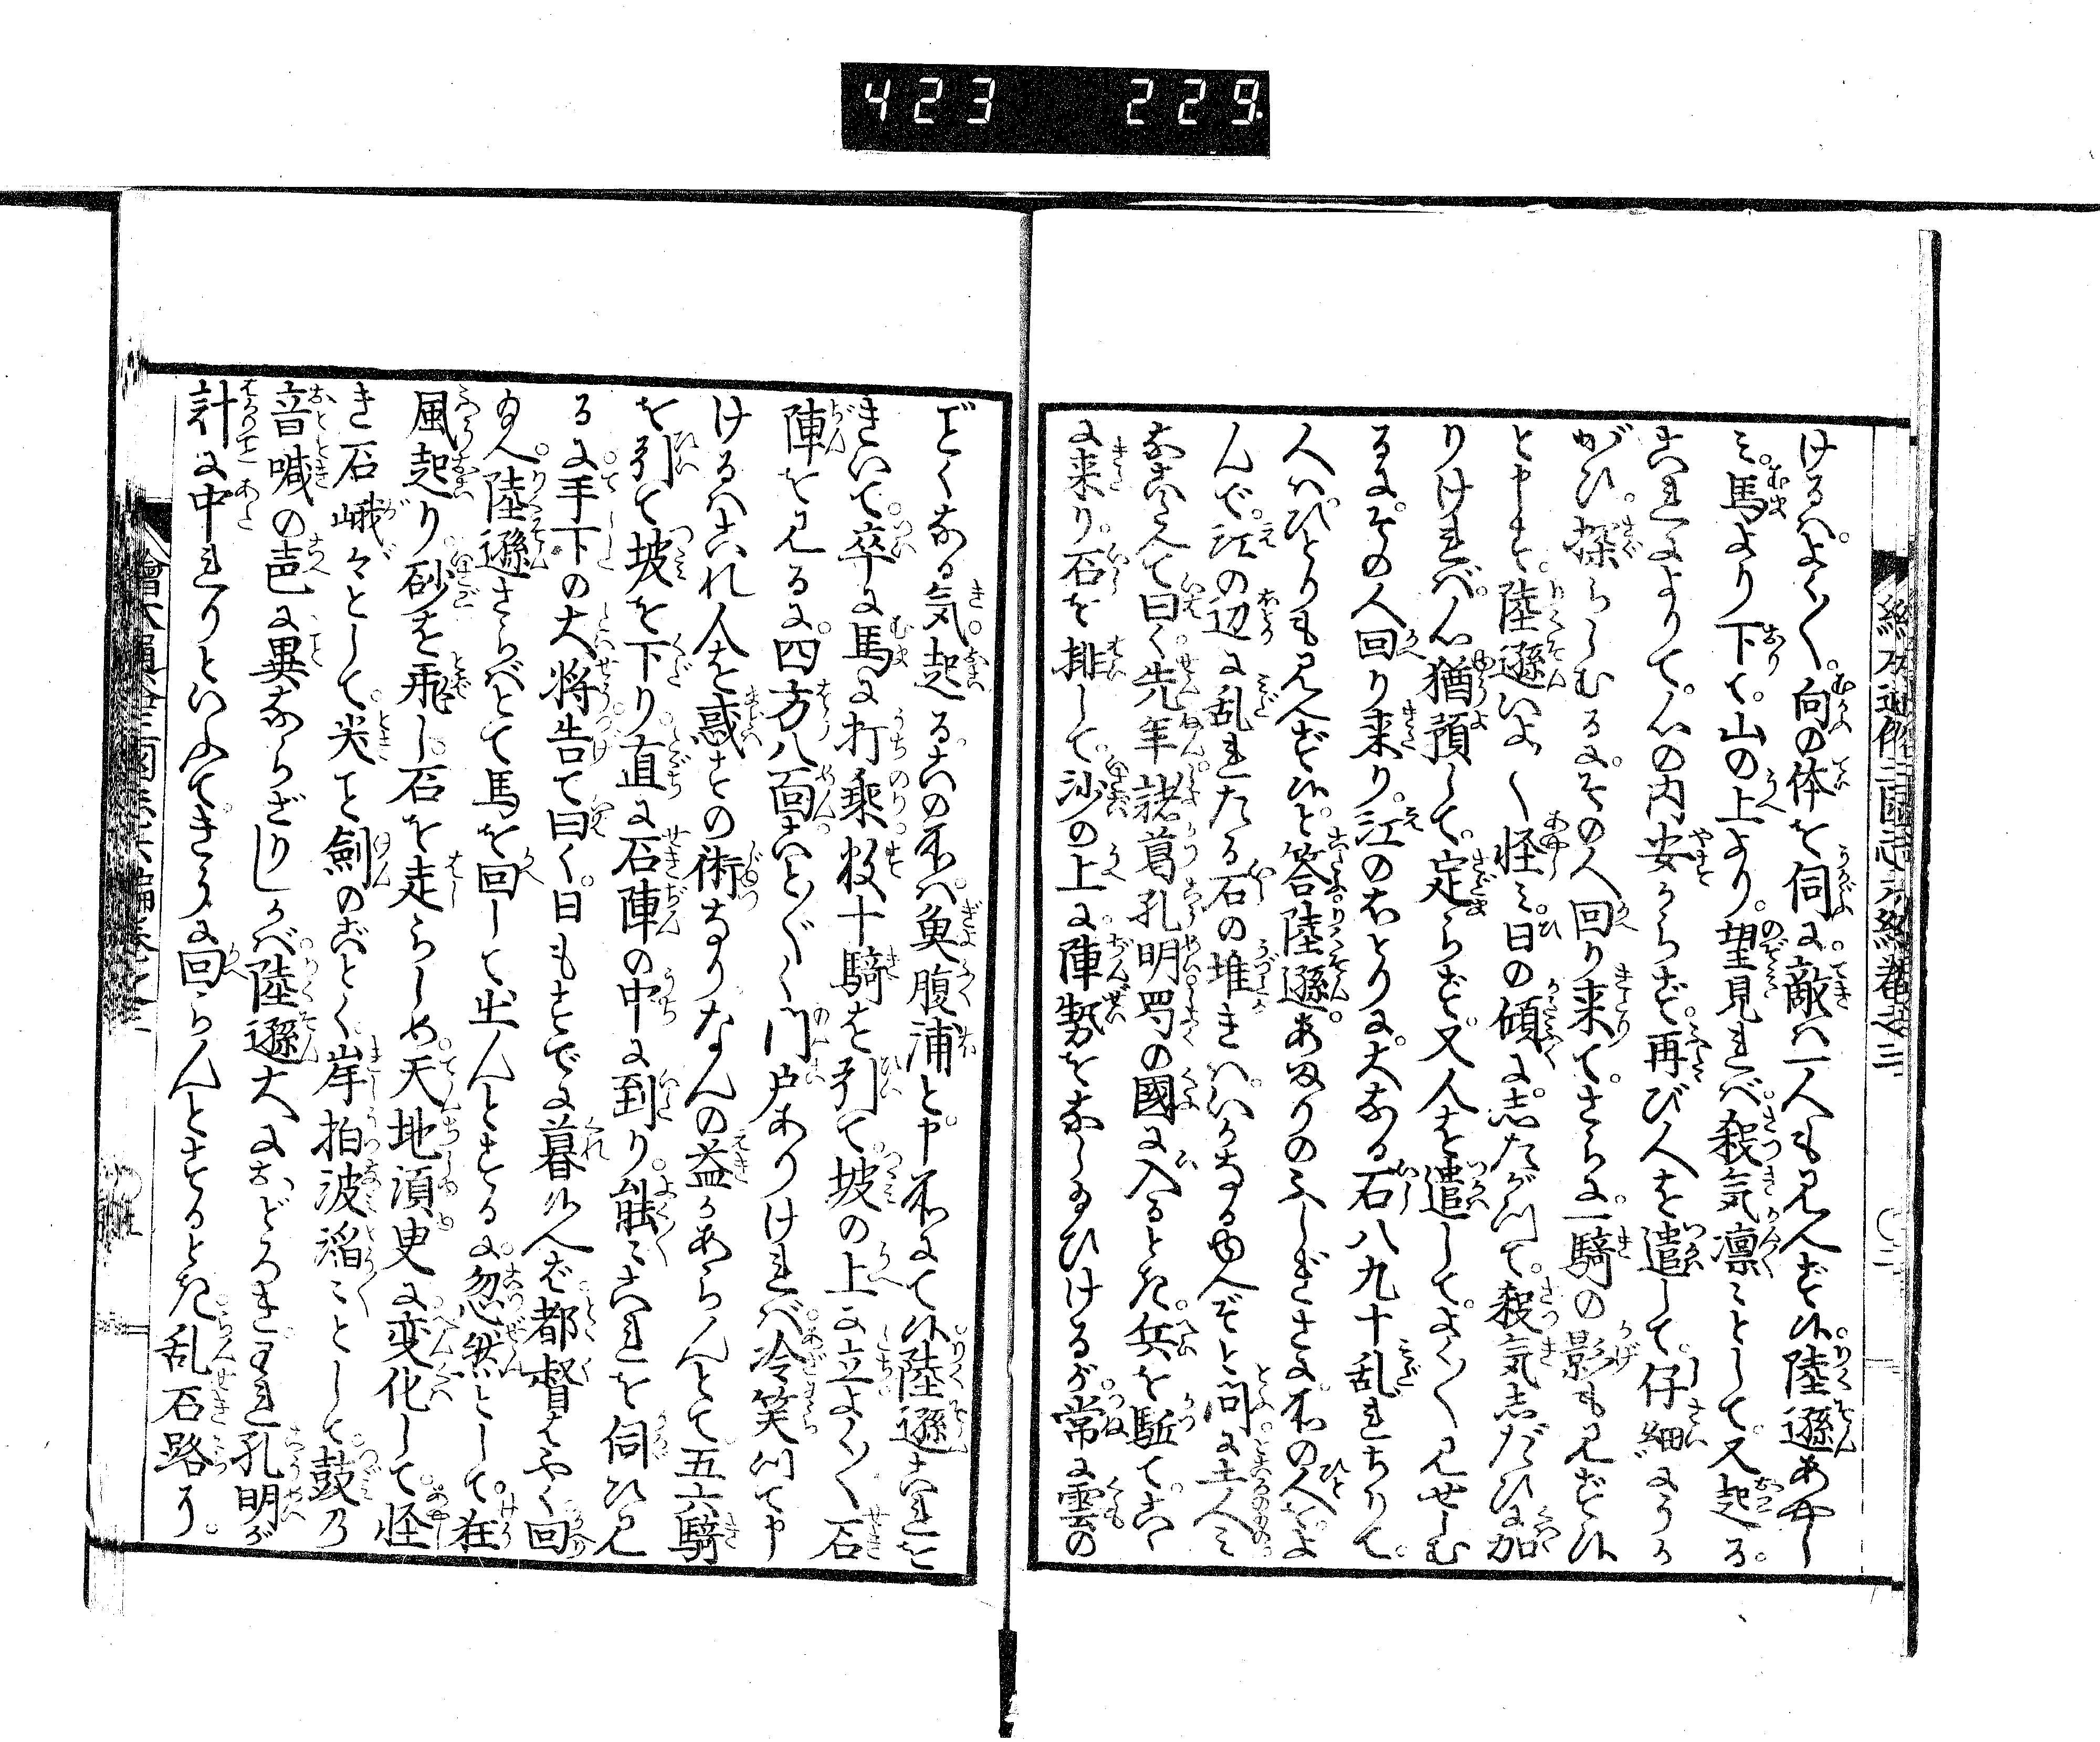 423 229
けるハよく〱。向の体を伺に敵ハ一人も見へず候。陸遜あやし
ミ。馬より下て。山の上より。望見れバ。殺気凛ことして。又起る。
これによりて。心の内安からず。再び人を遣して。仔細にうか
がひ。探らしむるに。その人回り来て。さらに一騎の影も見ず候
と申す。陸遜いよ〱怪ミ。日の傾に。したがつて。殺気しだひに加
りけれバ。心猶預して。定らず。又人を遣して。よく〱見せしむ
るに。その人回り来り。江のほとりに。大なる石八九十乱れちりて。
人ハひとりも見へず候と答。陸遜。あまりのふしぎさに。所の人をよ
んで。江の辺に乱れたる石の堆きハ。いかなるゆへぞと問に。土人ミ
なこたへて曰く。先年諸葛孔明。蜀の國に入るとき。兵を駈て。こゝ
に来り。石を排して。沙の上に。陣勢をなし給ひけるが。常に雲の
ごとくなる気。起る。この所ハ。魚腹浦と。申所にて候。陸遜これを
きいて。卒に馬に打乗。数十騎を引て。坡の上に立よく〱石
陣を見るに。四方八面。こと〲く門戸ありけれバ。冷笑つて申
けるハこれ人を惑すの術なり。なんの益かあらんとて五六騎
を引て坡を下り。直に石陣の中に到り。能ミこれを伺ひ見
るに。手下の大将告て曰く。日もすでに暮候へば都督はやく回
給へ。陸遜さらばとて馬を回して出んとするに。忽然として。狂
風起り。砂を飛し。石を走らしめ。天地須臾に変化して。怪
き石峨々として。尖こと劍のごとく。岸拍波滔ことして鼓乃
音喊の声に異ならざりしかバ。陸遜大におどろき。われ孔明が
計に中れりといふて。きうに回らんとするとき。乱石路を。